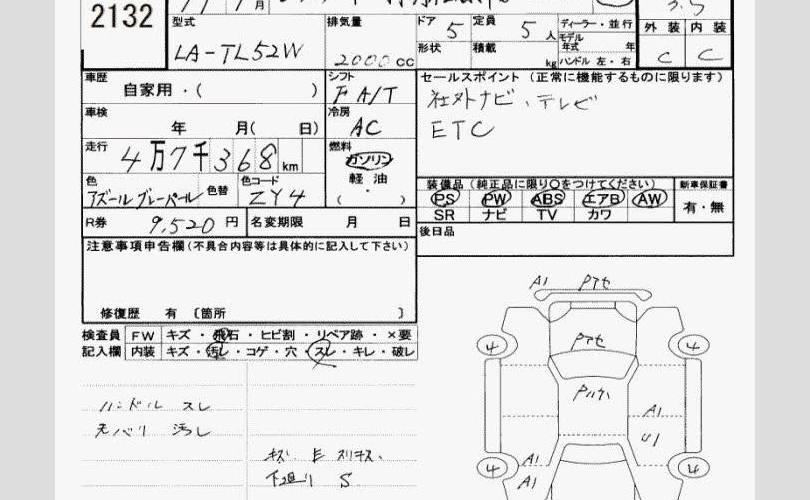 2132
月
型式
LA-TL52W
排気量
2000 cc
ドア 5
定員 5 人
ディーラー・並行
モデル年式 年
形状
積載 kg
ハンドル 左・右
3.5
外装 内装
C C
車歴
自家用・( )
シフト
F A/T
車検
年 月( 日)
冷房
AC
走行
4万7千368km
燃料
ガソリン
軽油
・
( )
色
アズールグレーパール
色替
色コード
ZY4
R券 9,520円
名変期限 月 日
セールスポイント (正常に機能するものに限ります)
社外ナビ、テレビ
ETC
装備品 (純正品に限り○をつけてください)
PS PW ABS エアB AW
SR ナビ TV カワ
新車保証書
有・無
後日品
注意事項申告欄(不具合内容等は具体的に記入して下さい)
修復歴 有 〔箇所 〕
検査員記入欄
FW キズ・飛石・ヒビ割・リペア跡・×要
内装 キズ・汚レ・コゲ・穴・スレ・キレ・破レ
ハンドル スレ
天バリ 汚レ
下廻り S
A1
4
4
A1
U1
A1
A1
4
4